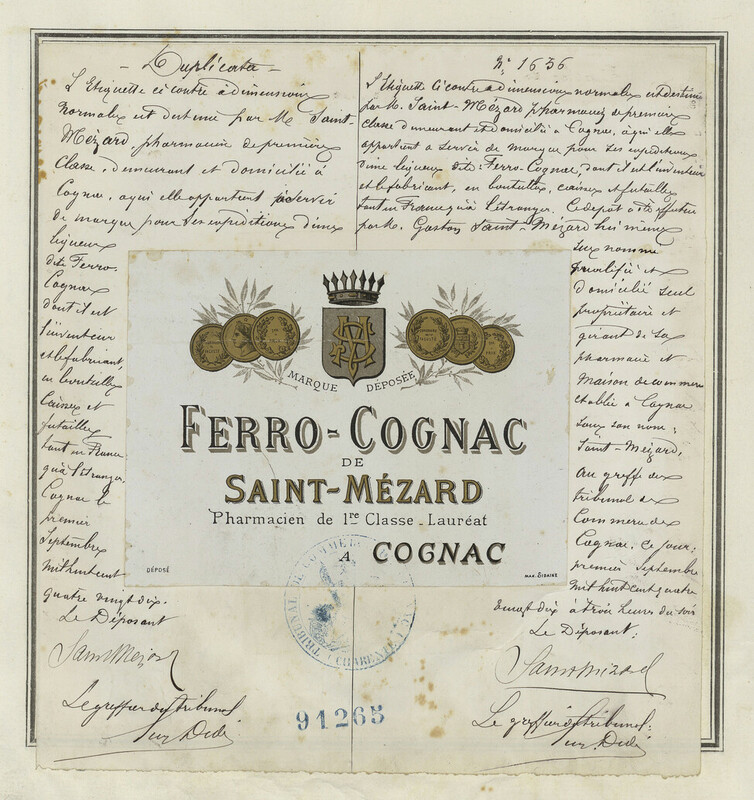 Duplicata
L'Etiquette ci contre à dimensions
normales est destinée par M. Saint-
Mézard, pharmacien de première
Classe, demeurant et domicilié à
Cognac, à qui elle appartient à servir
de marque pour ses expéditions d'une
liqueur
dite Ferro-
Cognac
dont il est
l'inventeur
et le fabricant,
en bouteilles
Caisses et
futailles
tant en France
qu'à l'étranger.
Cognac le
premier
Septembre
mil huit cent
quatre vingt dix.
Le Déposant
Saint-Mézard
Le greffier du tribunal
N° 1636
L'Etiquette ci contre à dimensions normales est destinée
par M. Saint-Mézard pharmacien de première
Classe demeurant et domicilié à Cognac, à qui elle
appartient à servir de marque pour ses expéditions
d'une liqueur dite: Ferro-Cognac, dont il est l'inventeur
et le fabricant, en bouteilles, caisses et futailles
tant en France qu'à l'étranger. Ce dépôt a été effectué
par M. Gaston Saint-Mézard lui même
sus nommé
qualifié et
domicilié seul
propriétaire et
gérant de sa
pharmacie et
Maison de commerce
établie à Cognac
sous son nom:
Saint-Mézard,
Au greffe du
tribunal de
Commerce de
Cognac, ce jour:
premier Septembre
mil huit cent quatre
vingt dix à trois heures du soir
Le Déposant:
Saint-Mézard
Le greffier du tribunal:
MARQUE DÉPOSÉE
FERRO-COGNAC
DE
SAINT-MÉZARD
Pharmacien de 1re Classe - Lauréat
A COGNAC
DÉPOSÉ
TRIBUNAL DE COMMERCE
CHARENTE
91265